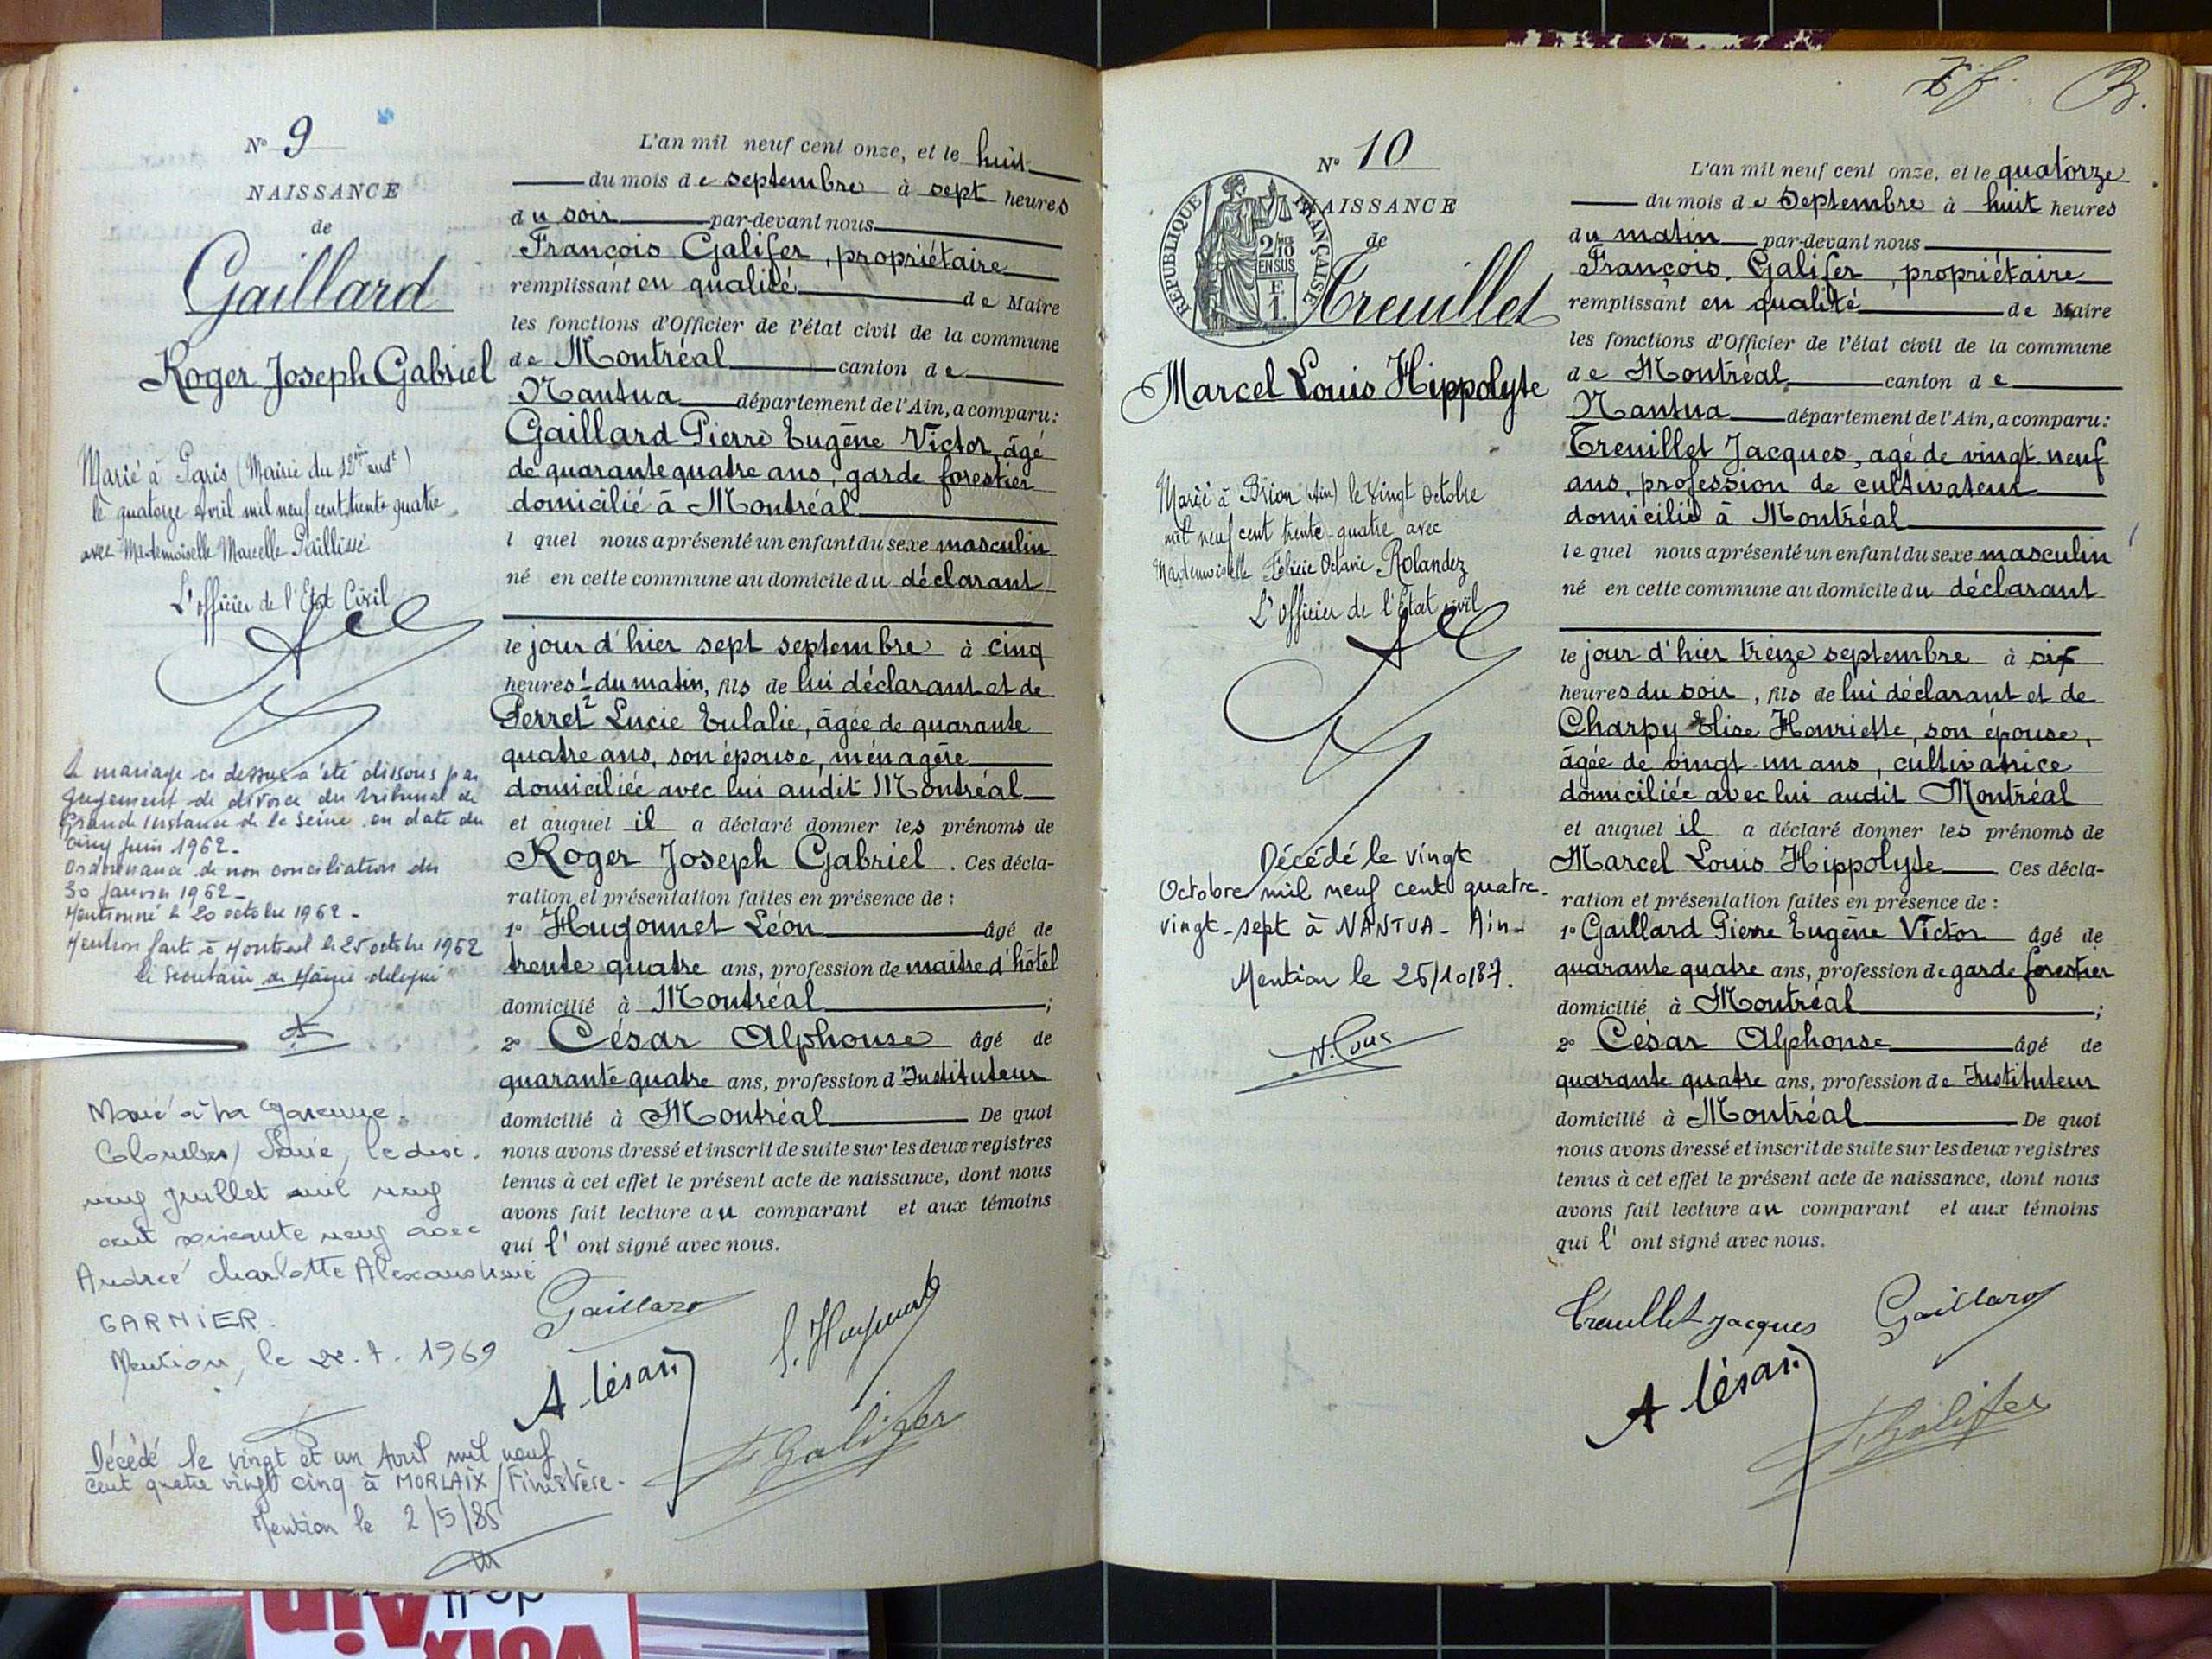 N° 9
NAISSANCE
de
Gaillard
Roger Joseph Gabriel
Marié à Paris (Mairie du 12ème arrdt)
le quatorze avril mil neuf cent trente quatre
avec Mademoiselle Marcelle Paillissé
L'officier de l'Etat Civil
Le mariage ci dessus a été dissous par
jugement de divorce du tribunal de
Grande Instance de la Seine en date du
cinq juin 1962-
Ordonnance de non conciliation du
30 janvier 1962-
Mentionné le 20 octobre 1962-
Mention faite à Montréal le 25 octobre 1962
le Secrétaire de Mairie délégué
Marié à La Garenne
Colombes / Seine, le dix.
neuf juillet mil neuf
cent soixante neuf avec
Andrée Charlotte Alexandrine
GARNIER.
Mention, le 22.7.1969
Décédé le vingt et un Avril mil neuf
cent quatre vingt cinq à MORLAIX / Finistère-
Mention le 2/5/85
L'an mil neuf cent onze, et le huit
du mois de septembre à sept heures
du soir par-devant nous
François Galifer, propriétaire
remplissant en qualité de Maire
les fonctions d'Officier de l'état civil de la commune
de Montréal canton de
Nantua département de l'Ain, a comparu:
Gaillard Pierre Eugène Victor, âgé
de quarante quatre ans, garde forestier
domicilié à Montréal
l quel nous a présenté un enfant du sexe masculin
né en cette commune au domicile du déclarant
le jour d'hier sept septembre à cinq
heures 1/2 du matin, fils de lui déclarant et de
Perret Lucie Eulalie, âgée de quarante
quatre ans, son épouse, ménagère
domiciliée avec lui audit Montréal
et auquel il a déclaré donner les prénoms de
Roger Joseph Gabriel. Ces décla-
ration et présentation faites en présence de :
1° Hugonnet Léon âgé de
trente quatre ans, profession de maitre d'hôtel
domicilié à Montréal ;
2° César Alphonse âgé de
quarante quatre ans, profession d'Instituteur
domicilié à Montréal De quoi
nous avons dressé et inscrit de suite sur les deux registres
tenus à cet effet le présent acte de naissance, dont nous
avons fait lecture au comparant et aux témoins
qui l' ont signé avec nous.
Gaillard
L. Hugonnet
A César
F Galifer
N° 10
NAISSANCE
de
RÉPUBLIQUE FRANÇAISE
2/10 EN SUS
F.
1.
Treuillet
Marcel Louis Hippolyte
Marié à Brion (Ain) le vingt octobre
mil neuf cent trente-quatre avec
Mademoiselle Félicie Octavie Rolandez
L'officier de l'état civil
Décédé le vingt
Octobre mil neuf cent quatre-
vingt-sept à NANTUA- Ain-
Mention le 26/10/87.
L'an mil neuf cent onze, et le quatorze
du mois de Septembre à huit heures
du matin par-devant nous
François Galifer, propriétaire
remplissant en qualité de Maire
les fonctions d'Officier de l'état civil de la commune
de Montréal canton de
Nantua département de l'Ain, a comparu:
Treuillet Jacques, agé de vingt neuf
ans, profession de cultivateur
domicilié à Montréal
lequel nous a présenté un enfant du sexe masculin
né en cette commune au domicile du déclarant
le jour d'hier treize septembre à six
heures du soir, fils de lui déclarant et de
Charpy Elise Henriette, son épouse,
âgée de vingt un ans, cultivatrice
domiciliée avec lui audit Montréal
et auquel il a déclaré donner les prénoms de
Marcel Louis Hippolyte Ces décla-
ration et présentation faites en présence de :
1° Gaillard Pierre Eugène Victor âgé de
quarante quatre ans, profession de garde forestier
domicilié à Montréal ;
2° César Alphonse âgé de
quarante quatre ans, profession de Instituteur
domicilié à Montréal De quoi
nous avons dressé et inscrit de suite sur les deux registres
tenus à cet effet le présent acte de naissance, dont nous
avons fait lecture au comparant et aux témoins
qui l' ont signé avec nous.
Treuillet Jacques
Gaillard
A César
F. Galifer
VOIX
de l'Ain